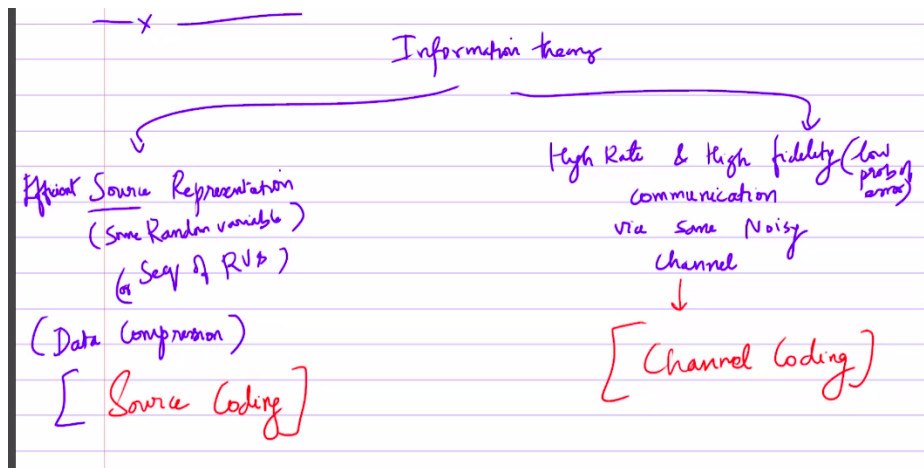 Information theory
Efficient Source Representation
(Some Random variable)
(or Seq of RVs)
(Data Compression)
[Source Coding]
High Rate & High fidelity (low prob of error)
communication
via some Noisy
Channel
↓
[Channel Coding]